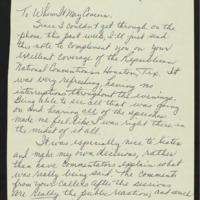 To Whom It May Concern,
Since I couldn't get through on the
phone the past week, I'll just send
this note to compliment you on your
excellent coverage of the Republican
National Convention in Houston, Tex. It
was very refreshing, having no
interruptions throughout the evenings.
Being able to see all that was going
on and hearing all of the speeches
made me feel like I was right there in
the midst of it all.
It was especially nice to listen
and make my own decisions, rather
than have Commentators explain what
was really being said. The comments
from your Callers after the sessions
were really the public reactions, not such